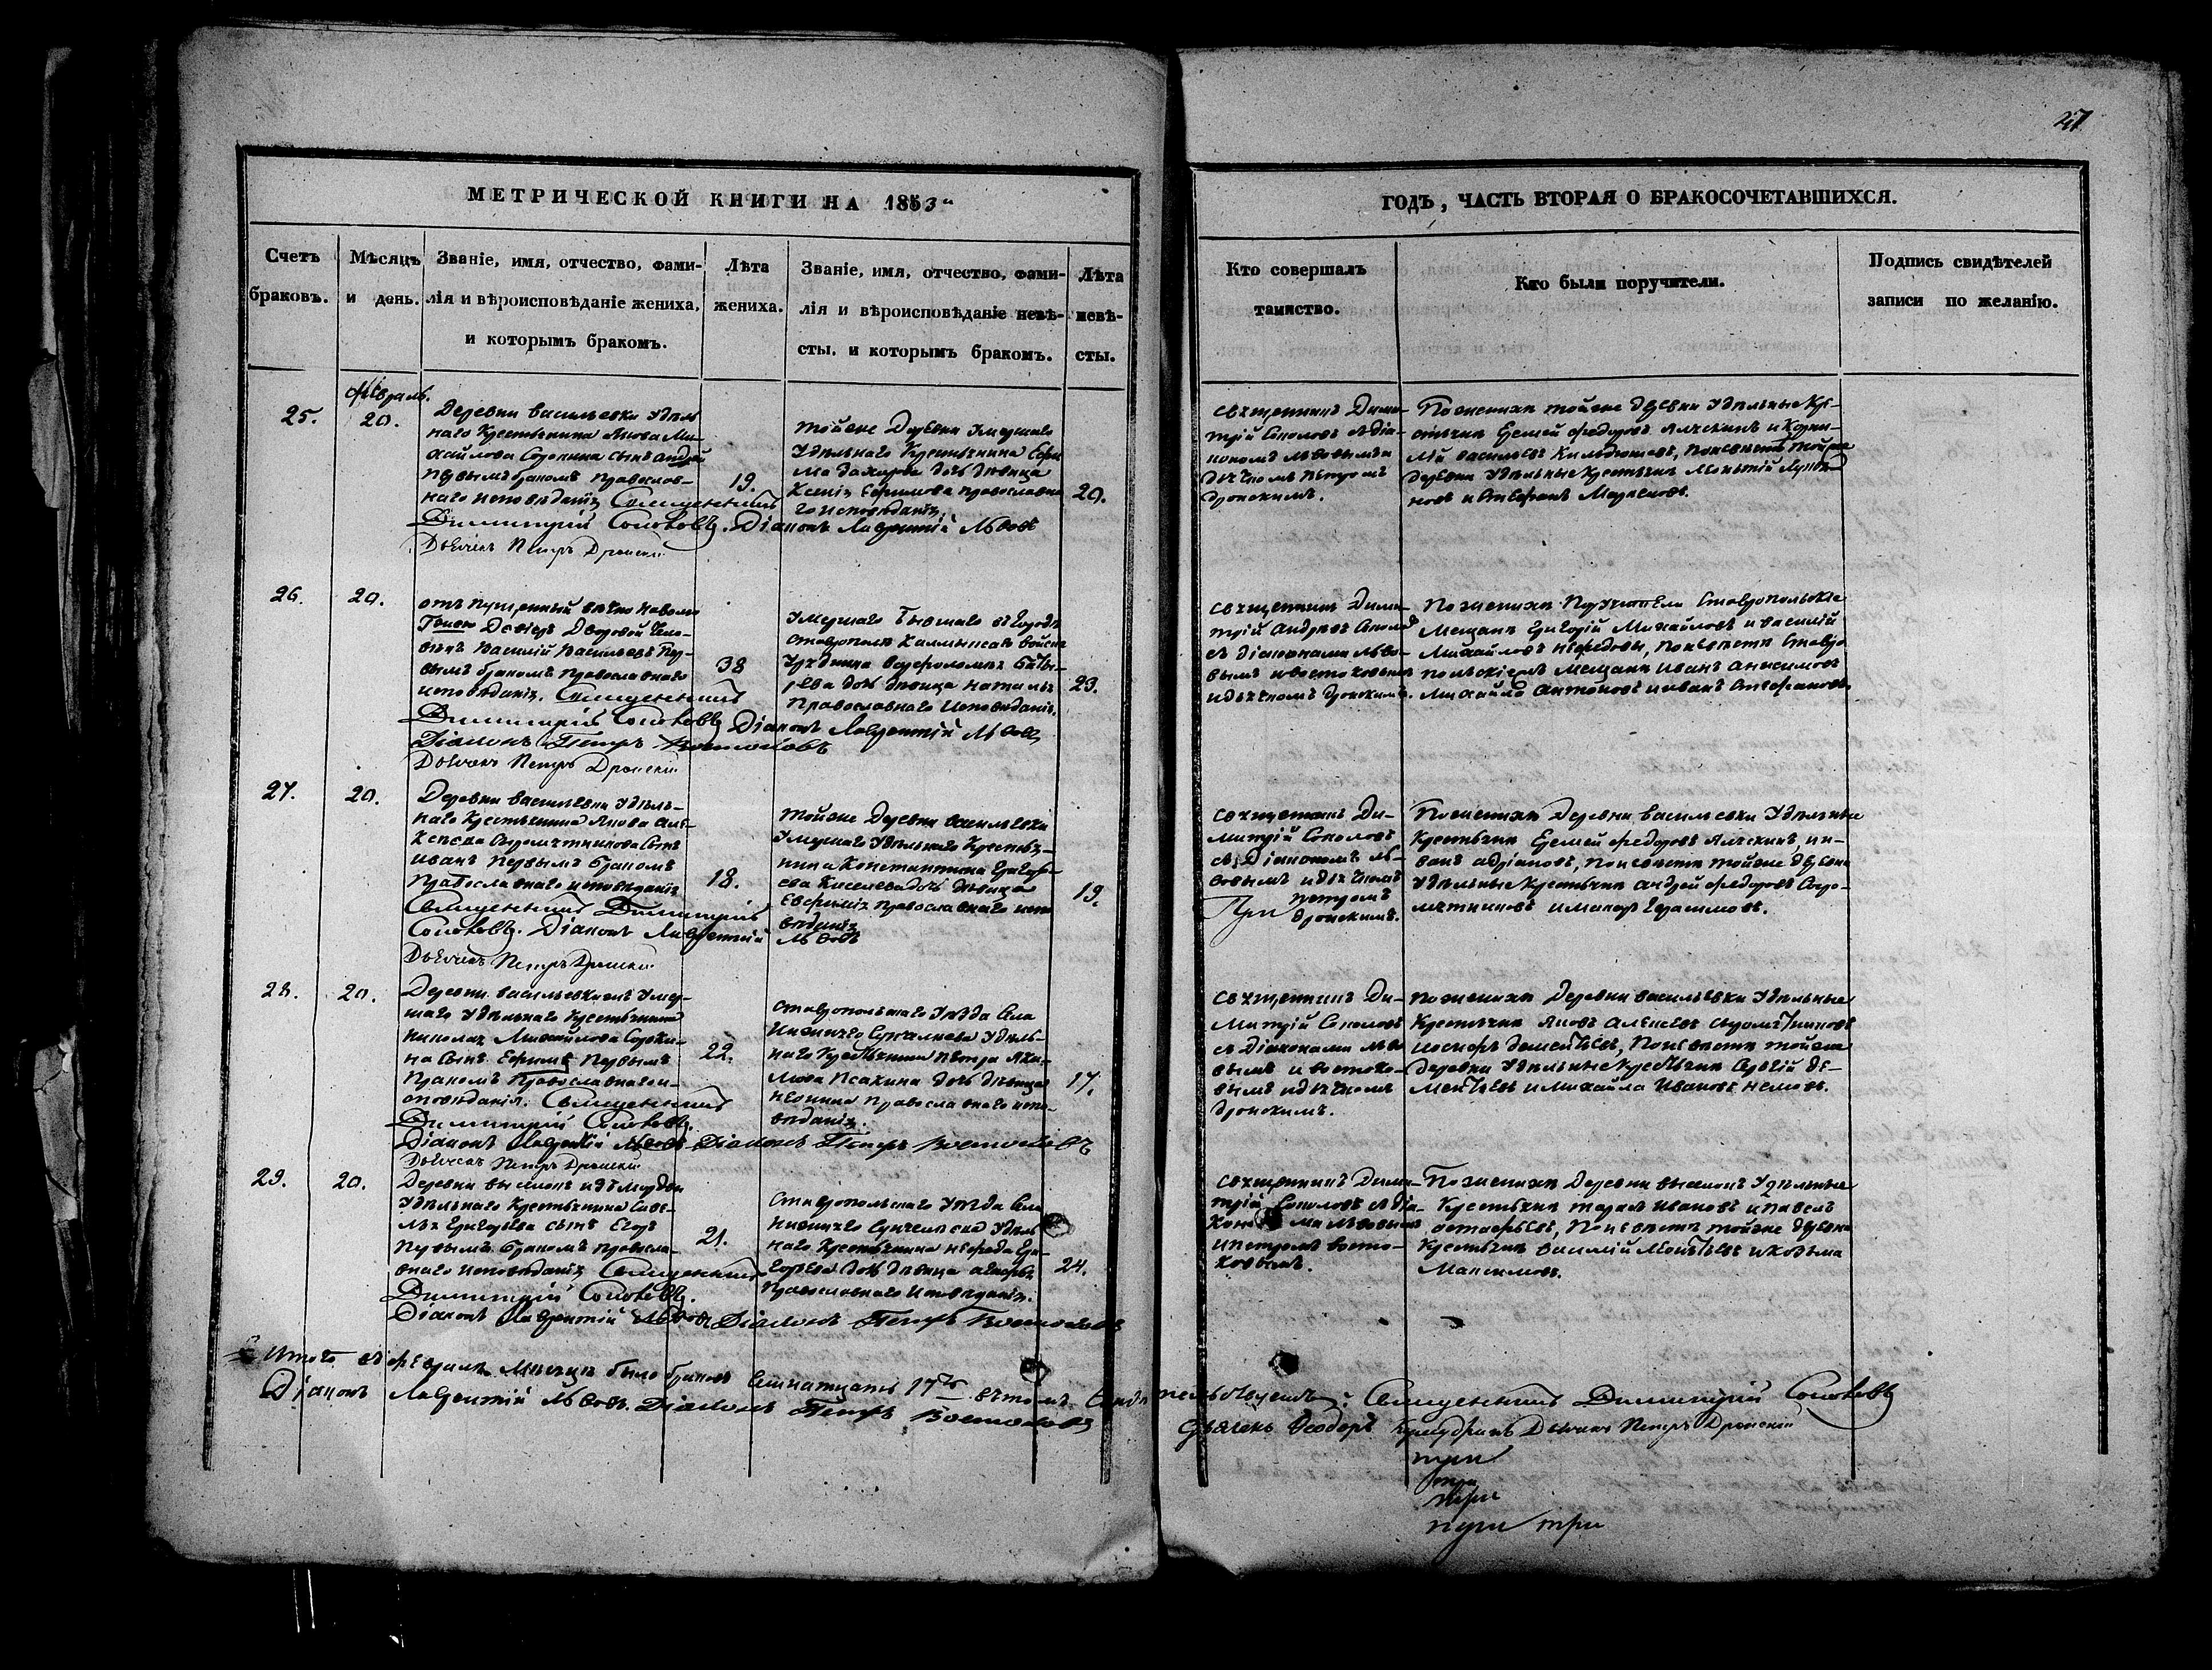 47
МЕТРИЧЕСКОЙ КНИГИ НА 1853
ГОДЪ, ЧАСТЬ ВТОРАЯ О БРАКОСОЧЕТАВШИХСЯ.
Счетъ
браковъ.
Мѣсяцъ
и день.
Званіе, имя, отчество, фами-
лія и вѣроисповѣданіе жениха,
и которымъ бракомъ.
Лѣта
жениха.
Званіе, имя, отчество, фами-
лія и вѣроисповѣданіе невѣ-
сты. и которымъ бракомъ.
Лѣта
невѣ-
сты.
Кто совершалъ
таинство.
Кто были поручители.
Подпись свидѣтелей
записи по желанію.
Февраль.
25.
20.
Деревни Васильевки Удѣль
наго Крестьянина Якова Ми-
хайлова Сорокина сынъ Андрей
первымъ бракомъ православ-
наго исповѣданія Священникъ
Димитрій Соколовъ. Діаконъ Лаврентій Львовъ
Дьячекъ Петръ
19.
Тойже Деревни Умершаго
Удѣльнаго Крестьянина Ефи
ма Захарова дочь дѣвица
Ксенія Ефимова православна
го исповѣданія.
20.
Священникъ Дими-
трій Соколовъ съ Діа-
кономъ Львовымъ и
дьячкомъ Петромъ
По женихѣ тойже деревни Удѣльные Кре-
стьяне Ермей Федоровъ и Корни-
лій Васильевъ по невѣстѣ тойже
деревни Удѣльные Крестьяне
и Стефанъ
26.
20.
Отъ пущенный вѣчно на волю
Дворовой Чело-
вѣкъ Василій Васильевъ Пер-
вымъ бракомъ Православнаго
исповѣданія. Священникъ
Димитрій Соколовъ Діаконъ Лаврентій Львовъ
Діаконъ Петръ Востоковъ
Дьячекъ Петръ
38
Умершаго бывшаго въ Городѣ
Ставрополѣ Калмыцкаго войска
дочь дѣвица Наталья
Православнаго Исповѣданія.
23.
Священникъ Дими-
трій Андреевъ Соколовъ
съ Діаконами Льво-
вымъ и Востоковымъ
и дьячкомъ
По женихѣ Поручители Ставропольскіе
Мещане Григорій Михайловъ и Василій
Михайловъ Нефедовы, По невѣстѣ Ставро
польскіежъ Мещане Иванъ Анисимовъ
Михайло Антоновъ и Иванъ Стефановъ.
27.
20.
Деревни Васильевки Удѣль-
наго Крестьянина Якова Але-
ксеева Сыромятникова Сынъ
Иванъ первымъ бракомъ
Православнаго исповѣданія
Священникъ Димитрій
Соколовъ. Діаконъ Лаврентій Львовъ
Дьячекъ Петръ
18.
Тойже Деревни Васильевки
Умершаго Удѣльнаго Крестья-
нина Константина Григорь-
ева Киселева дочь дѣвица
Евфимія православнаго испо
вѣданія
19.
Священникъ Ди-
митрій Соколовъ
съ Діакономъ Ль-
вовымъ и дьячкомъ
Петромъ
При
По женихѣ Деревни Васильевки Удѣльные
Крестьяне Ермей Федоровъ и И-
ванъ Адріановъ, По невѣстѣ тойже деревни
Удѣльные Крестьяне Андрей Федоровъ Сыро-
мятниковъ и Макаръ Герасимовъ.
28.
20.
Деревни Васильевки Умер-
шаго Удѣльнаго Крестьянина
Николая Михайлова Сороки-
на Сынъ Ефимъ Первымъ
Бракомъ Православнаго и-
сповѣданія. Священникъ
Димитрій Соколовъ
Діаконъ Лаврентій Львовъ Діаконъ Петръ Востоковъ
Дьячекъ Петръ
22.
Ставропольскаго Уѣзда Села
Нижняго Удѣль-
наго Крестьянина Петра Яки-
мова дочь дѣвица
православнаго испо-
вѣданія.
17.
Священникъ Ди-
митрій Соколовъ
съ Діаконами Льво
вымъ и Востоко-
вымъ и дьячкомъ
По женихѣ Деревни Васильевки Удѣльные
Крестьяне Яковъ Алексѣевъ Сыромятниковъ
Іосифъ Дементьевъ, По невѣстѣ тойже
деревни Удѣльные Крестьяне Сергій Де-
ментьевъ и Михайла Ивановъ
29.
20.
Деревни
Удѣльнаго Крестьянина Саве-
лья Григорьева сынъ Егоръ
Первымъ бракомъ православ-
внаго исповѣданія Священникъ
Димитрій Соколовъ.
Діаконъ Лаврентій Львовъ Діаконъ Петръ Востоковъ
21.
Ставропольскаго Уѣзда Села
Нижняго Удѣль
наго Крестьянина Нефеда Гри-
горьева дочь дѣвица
Православнаго Исповѣданія.
24.
Священникъ Дими-
трій Соколовъ съ Діа-
конами Львовымъ
и Петромъ Восто-
ковымъ.
По женихѣ Деревни Удѣльные
Крестьяне Тарасъ Ивановъ и Павелъ
Астафьевъ, По невѣстѣ тойже деревни
Крестьяне Василій и Козьма
Максимовъ.
Итого въ Февралѣ Мѣсяцѣ было браковъ Семнатцать 17ть въ томъ Свидѣтельствуемъ: Священникъ Димитрій Соколовъ
Діаконъ Лаврентій Львовъ. Діаконъ Петръ Востоковъ
Дьячекъ Ѳеодоръ Дьячекъ Петръ
при
при
при
при при